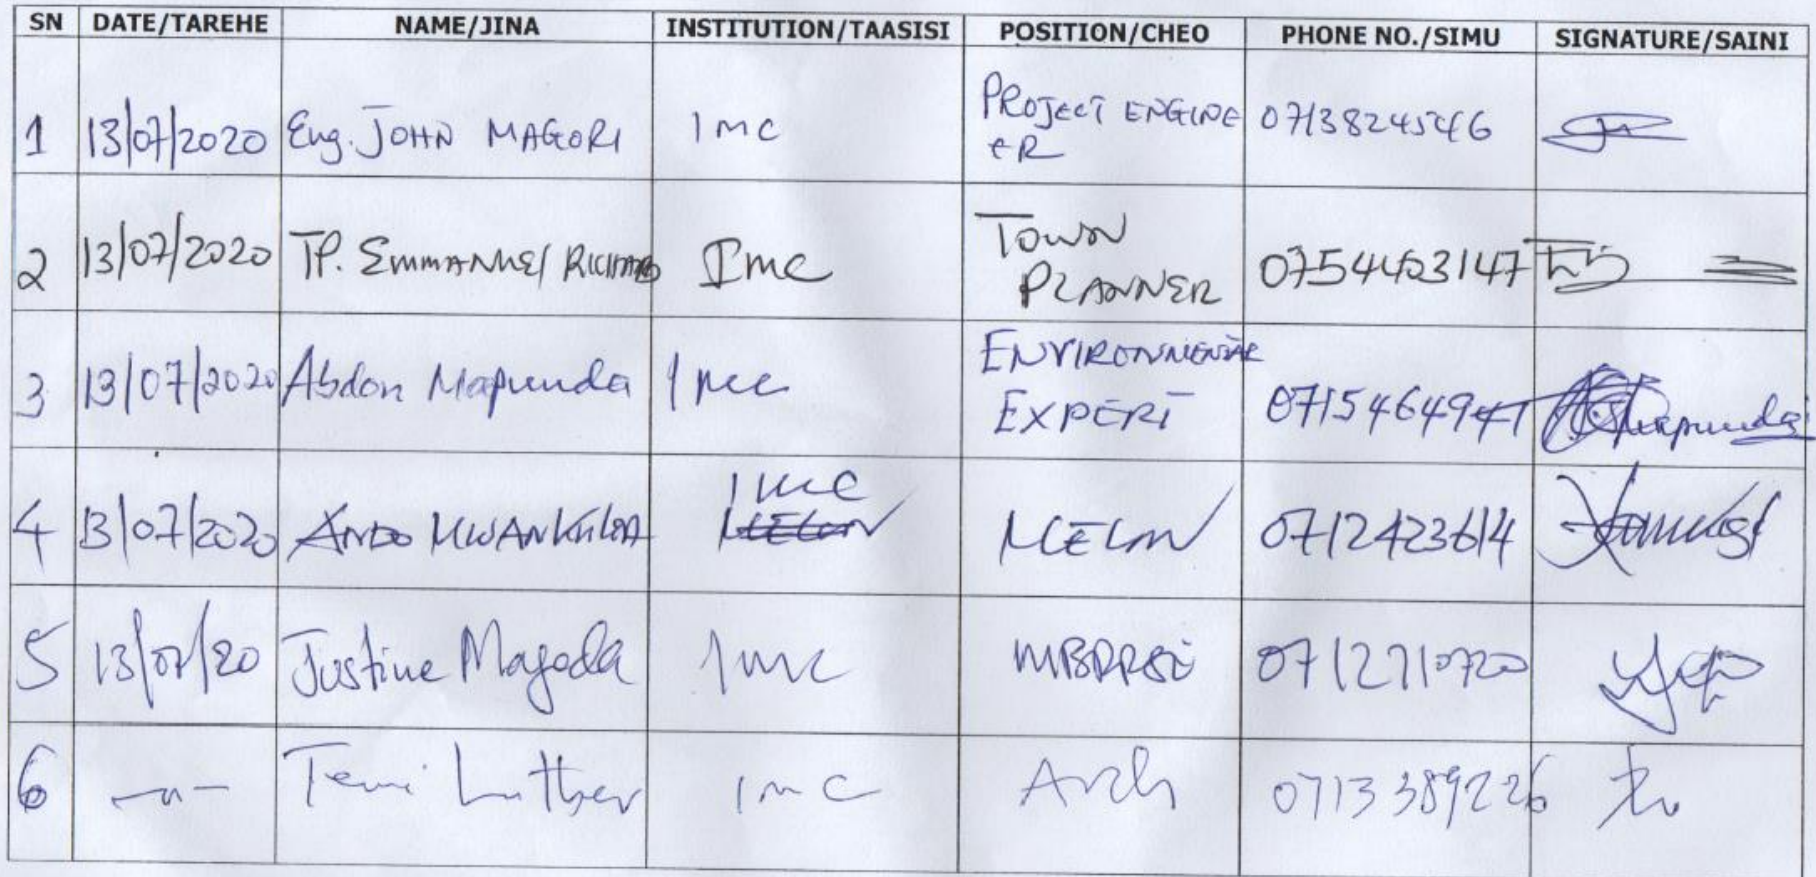 SN DATE/TAREHE NAME/JINA INSTITUTION/TAASISI POSITION/CHEO PHONE NO./SIMU SIGNATURE/SAINI
1 13/07/2020 Eng. JOHN MAGORI IMC PROJECT ENGINE 0713824546
ER
2 13/07/2020 TP. EMMANUEL RICHARD IMC TOWN 0754453147
PLANNER
3 13/07/2020 Abdon Mapunda IMC ENVIRONMENTAL
EXPERT Mapunda
IMC
4 13/07/2020 0712423614
5 13/07/20 Justine IMC 0712710720
6 —"— Temi Luther IMC Arch 0713389226